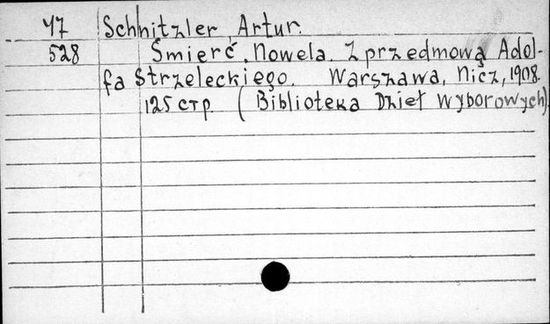 У7 Schnitzler, Artur.
528 Śmierć. Nowela. Z przedmową Adol-
fa Strzeleckiego. Warszawa, Nicz, 1908.
125 стр. (Biblioteka Dzieł wyborowych).